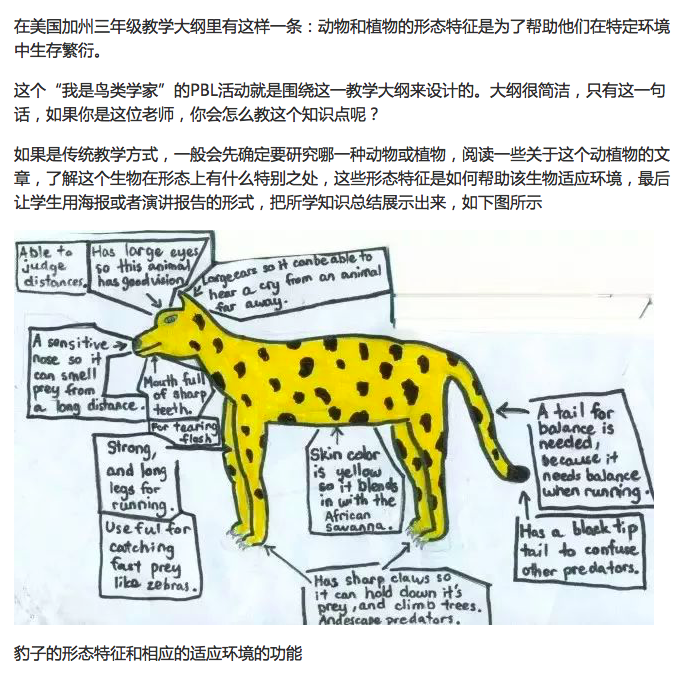 在美国加州三年级教学大纲里有这样一条：动物和植物的形态特征是为了帮助他们在特定环境
中生存繁衍。
这个“我是鸟类学家”的PBL活动就是围绕这一教学大纲来设计的。大纲很简洁，只有这一句
话，如果你是这位老师，你会怎么教这个知识点呢？
如果是传统教学方式，一般会先确定要研究哪一种动物或植物，阅读一些关于这个动植物的文
章，了解这个生物在形态上有什么特别之处，这些形态特征是如何帮助该生物适应环境，最后
让学生用海报或者演讲报告的形式，把所学知识总结展示出来，如下图所示
Able to
judge
distances.
Has large eyes
so this animal
has good vision
Large ears so it can be able to
hear a cry from an animal
far away.
A sensitive
nose so it
can smell
prey from
a long distance.
Mouth full
of sharp
teeth.
For tearing
flesh
Strong,
and long
legs for
running.
Useful for
catching
fast prey
like zebras.
Skin color
is yellow
so it blends
in with the
African
savanna.
A tail for
balance is
needed,
because it
needs balance
when running.
Has a black tip
tail to confuse
other predators.
Has sharp claws so
it can hold down it's
prey, and climb trees.
And escape predators.
豹子的形态特征和相应的适应环境的功能